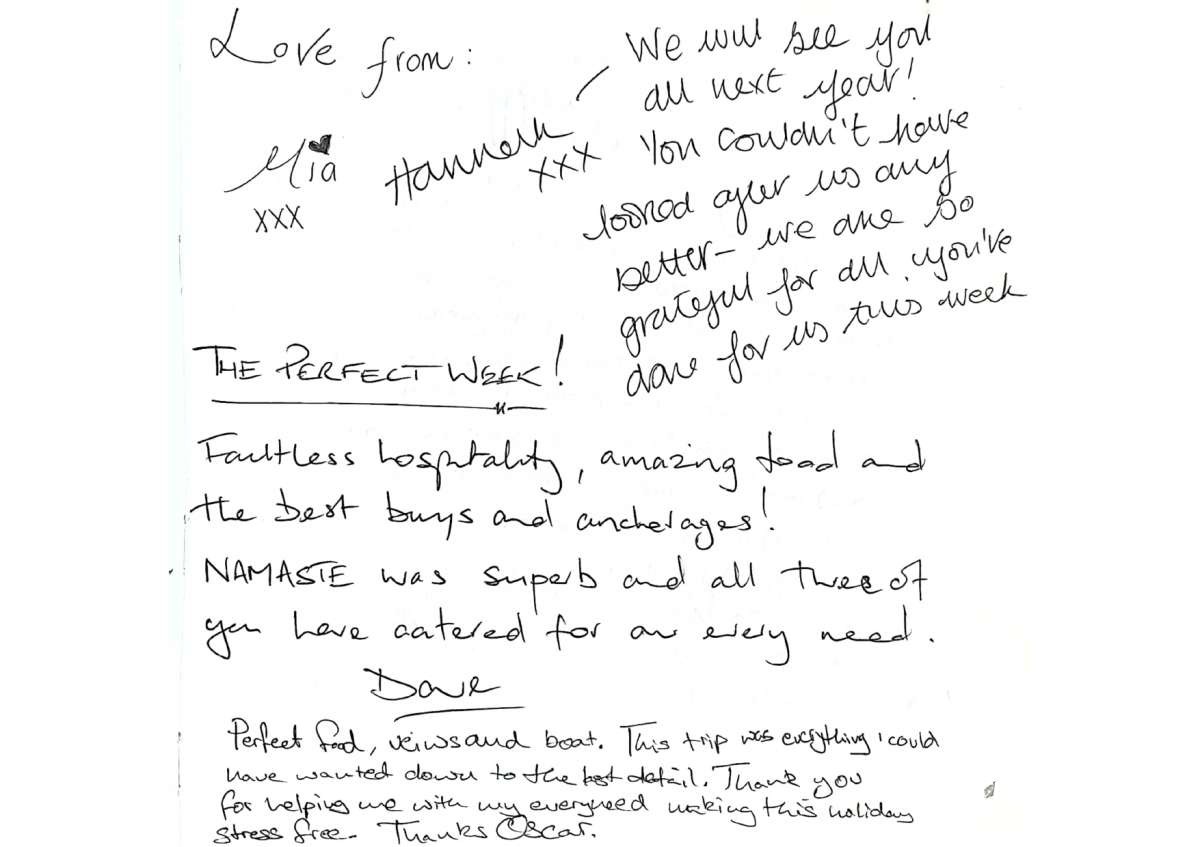 Love from:
Mia
XXX
Hannah
XXX
We will see you
all next year!
You couldn't have
looked after us any
better - we are so
grateful for all you've
done for us this week
THE PERFECT WEEK!
Faultless hospitality, amazing food and
the best buys and ancherages!
NAMASTE was superb and all three of
you have catered for our every need.
Dave
Perfect food, veiws and boat. This trip was everything i could
have wanted down to the last detail. Thank you
for helping me with my every need making this holiday
stress free. Thanks Oscar.